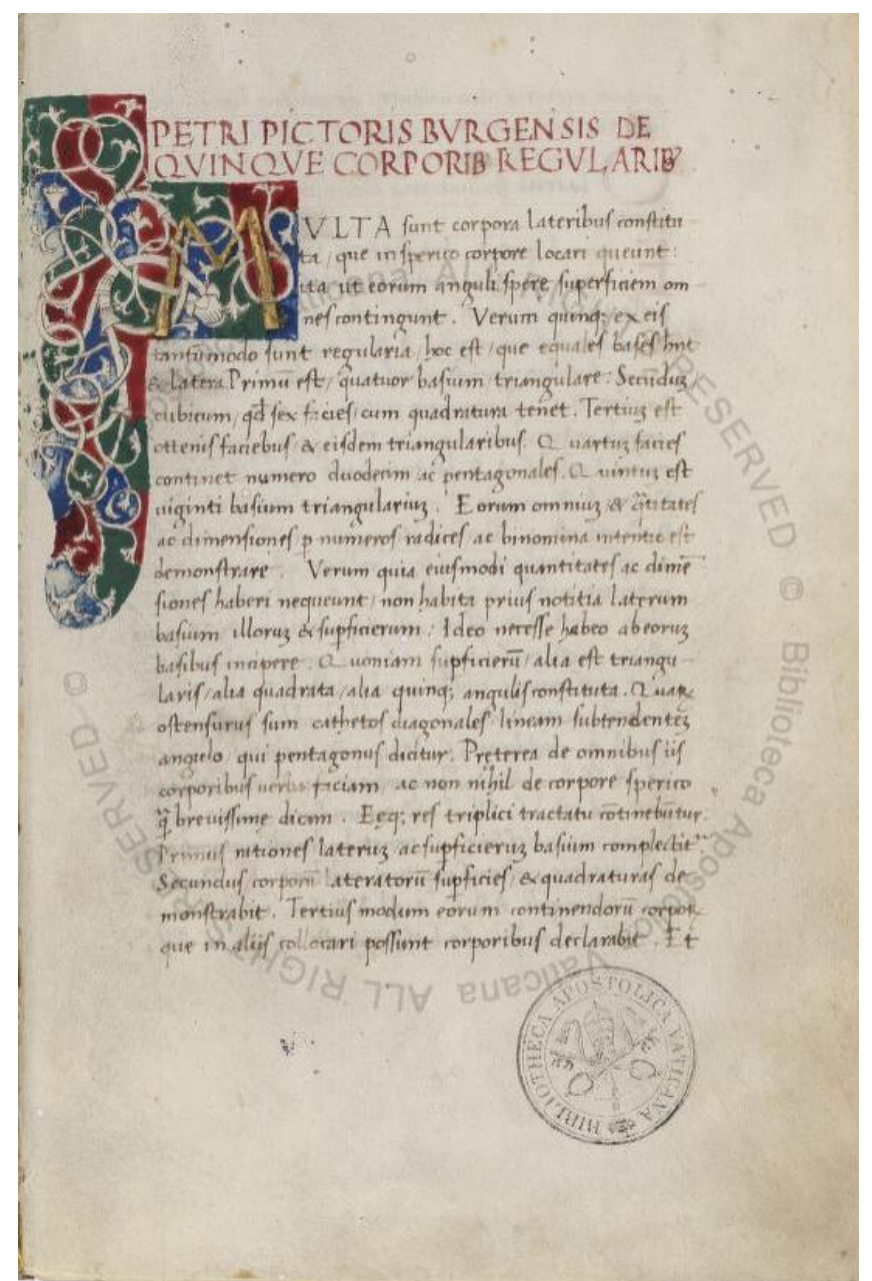 PETRI PICTORIS BVRGENSIS DE
QVINQVE CORPORIB REGVLARIB
MVLTA sunt corpora lateribus constitu
ta / que in sperico corpore locari queunt:
ita ut eorum anguli spere superficiem om
nes contingunt. Verum quinq; ex eis
tantũmodo sunt regularia / hoc est / que equales bases hñt
& latera. Primũ est / quatuor basium triangulare: Secũduz
cubicum / qđ sex facies cum quadratura tenet. Tertiuz est
ottenis faciebus & eisdem triangularibus. Quartuz facies
continet numero duodecim ac pentagonales. Quintuz est
uiginti basium triangulariuz. Eorum omniuz & q̃titates
ac dimensiones p numeros radices ac binomina intentio est
demonstrare. Verum quia eiusmodi quantitates ac dimẽ
siones haberi nequeunt / non habita prius notitia laterum
basium illoruz & supficierum: Ideo necesse habeo ab eoruz
basibus incipere. Quoniam supficierũ / alia est triangu
laris / alia quadrata / alia quinq; angulis constituta. Quaꝝ
ostensurus sum cathetos diagonales / lineam subtendentez
angulo / qui pentagonus dicitur. Pręterea de omnibus iis
corporibus uerba faciam / ac non nihil de corpore sperico
q̃ breuissime dicam. Eęq; res triplici tractatu cõtinebũtur.
Primus rationes lateruz ac supficieruz basium complectit
Secundus corporũ lateratorũ supficies & quadraturas de
monstrabit. Tertius modum eorum continendorũ corpoꝝ
que in aliis collocari possunt corporibus declarabit. Et
BIBLIOTHECA APOSTOLICA VATICANA
© Biblioteca Apostolica Vaticana ALL RIGHTS RESERVED